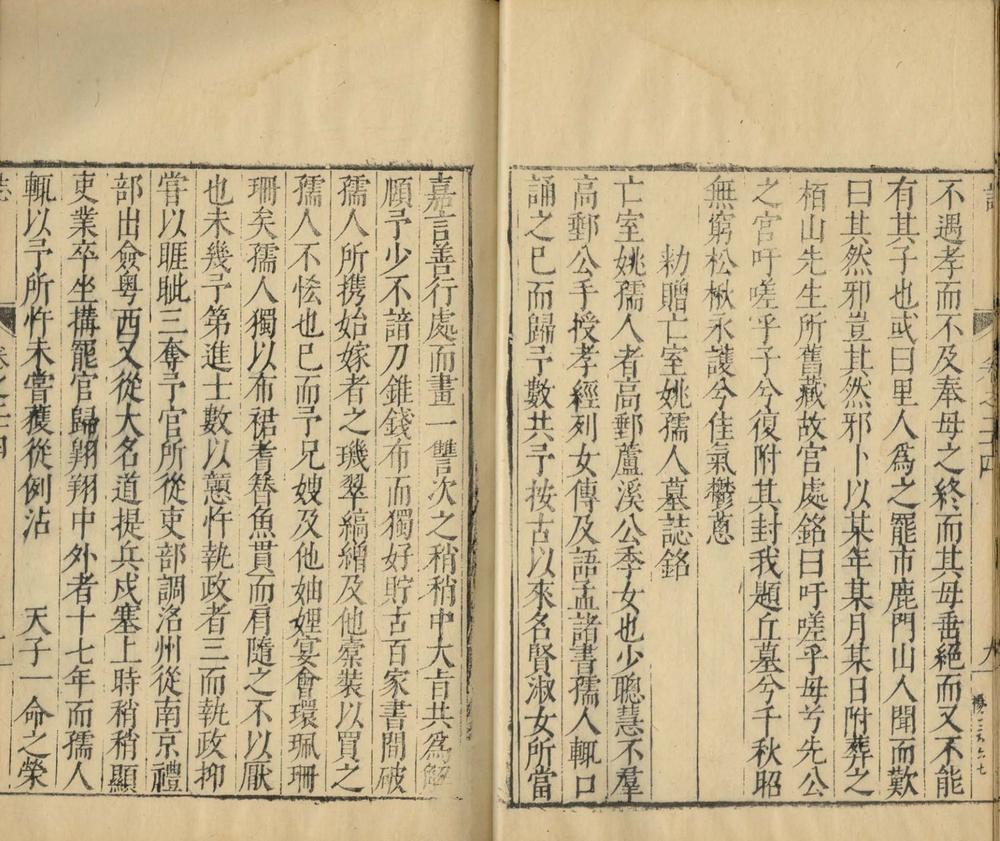 不遇孝而不及奉母之終而其母垂絕而又不能
有其子也或曰里人為之罷市鹿門山人聞而歎
曰其然邪豈其然邪卜以某年某月某日附葬之
栢山先生所舊藏故宮處銘曰吁嗟乎母兮先公
之宮吁嗟乎子兮復附其封我題丘墓兮千秋昭
無窮松楸永護兮佳氣鬱蔥
勑贈亡室姚孺人墓誌銘
亡室姚孺人者高郵蘆溪公季女也少聰慧不羣
高郵公手授孝經列女傳及語孟諸書孺人輒口
誦之已而歸予數共予按古以來名賢淑女所當
嘉言善行處而畫一讐次之稍稍中大旨共為解
頤予少不諳刀錐錢布而獨好貯古百家書間破
孺人所携始嫁者之璣翠縞繒及他橐裝以買之
孺人不恡也已而予兄嫂及他妯娌宴會環珮珊
珊矣孺人獨以布裙耆簪魚貫而肩隨之不以厭
也未幾予第進士數以戅忤執政者三而執政抑
嘗以睚眦三奪予官所從吏部調洺州從南京禮
部出僉粵西又從大名道提兵戍塞上時稍稍顯
吏業卒坐搆罷官歸翱翔中外者十七年而孺人
輒以予所忤未嘗獲從例沾　天子一命之榮